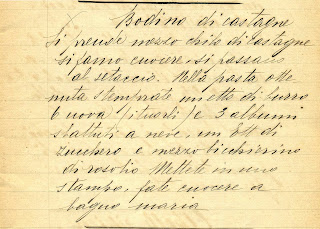 Bodino di castagne
Si prende mezzo chilo di castagne
si fanno cuocere si passano
al setaccio. Nella pasta otte
nuta stemprate un etto di burro
6 uova (i tuorli) e 3 albumi
sbattuti a neve, un Ett di
zucchero e mezzo bicchierino
di rosolio Mettete in uno
stampo, fate cuocere a
bagno maria